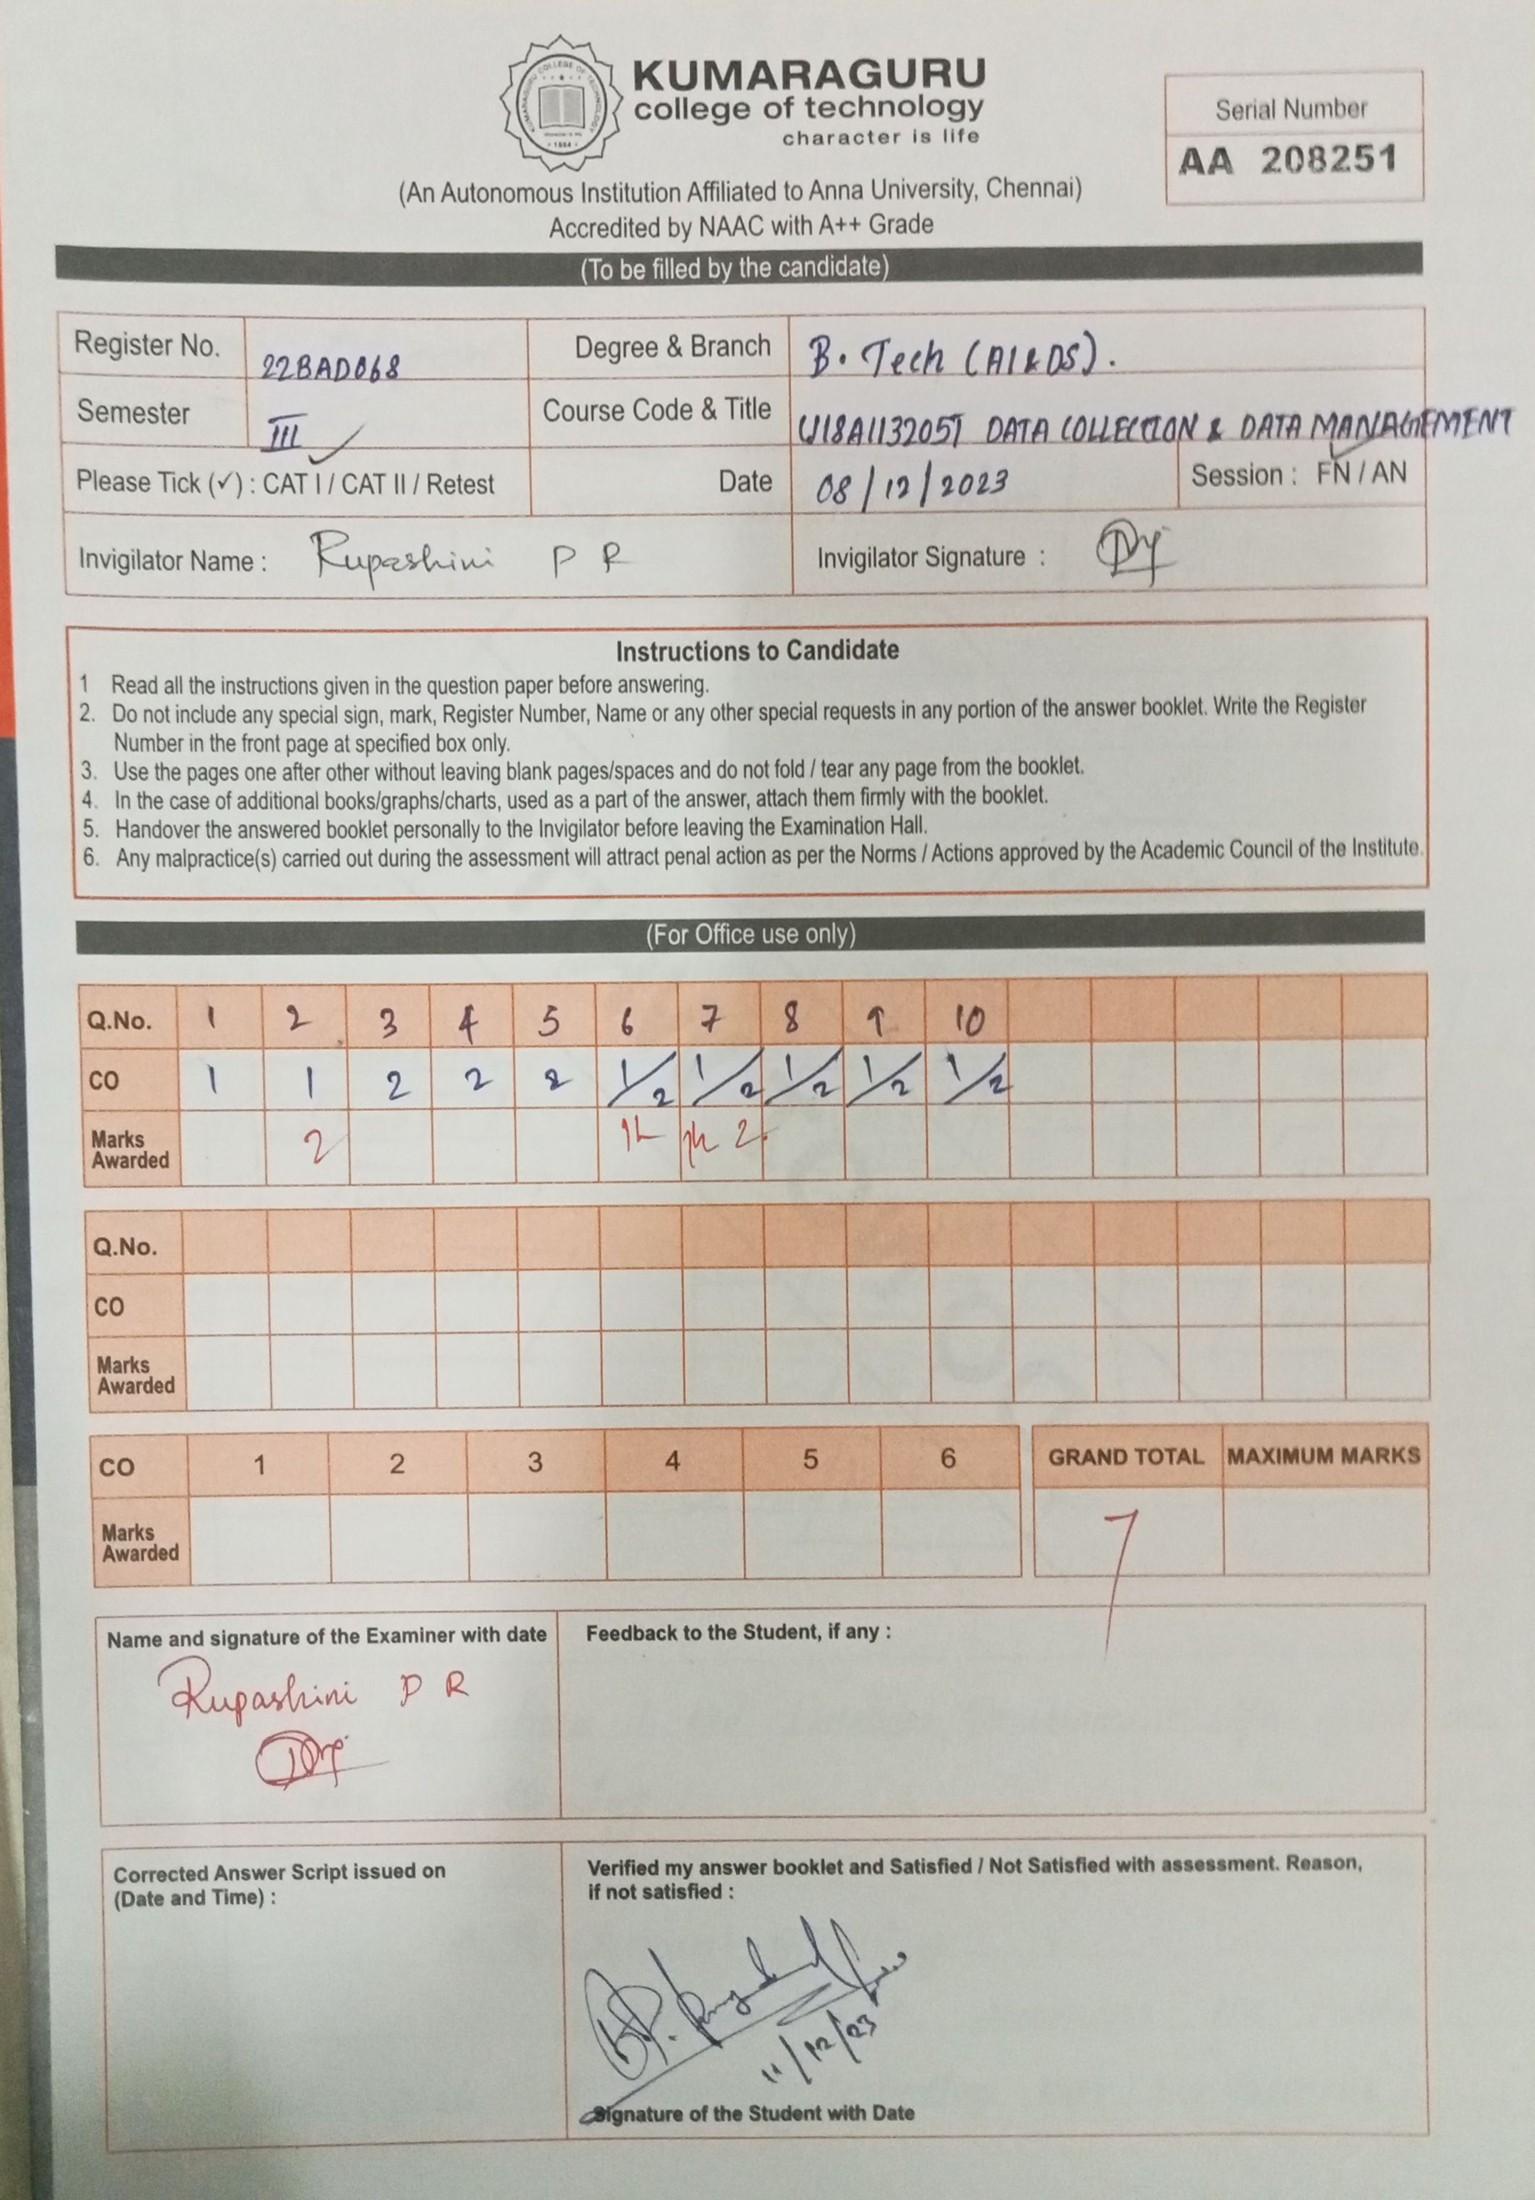 KUMARAGURU
college of technology
character is life
Serial Number
AA 208251
(An Autonomous Institution Affiliated to Anna University, Chennai)
Accredited by NAAC with A++ Grade
(To be filled by the candidate)
Register No. 22BAD068 Degree & Branch B. Tech (AI & DS).
Semester III Course Code & Title U18AII3205T DATA COLLECTION & DATA MANAGEMENT
Please Tick (✓) : CAT I / CAT II / Retest Date 08/12/2023 Session : FN / AN
Invigilator Name : Rupashini P R Invigilator Signature :
Instructions to Candidate
1 Read all the instructions given in the question paper before answering.
2. Do not include any special sign, mark, Register Number, Name or any other special requests in any portion of the answer booklet. Write the Register
Number in the front page at specified box only.
3. Use the pages one after other without leaving blank pages/spaces and do not fold / tear any page from the booklet.
4. In the case of additional books/graphs/charts, used as a part of the answer, attach them firmly with the booklet.
5. Handover the answered booklet personally to the Invigilator before leaving the Examination Hall.
6. Any malpractice(s) carried out during the assessment will attract penal action as per the Norms / Actions approved by the Academic Council of the Institute.
(For Office use only)
Q.No. 1 2 3 4 5 6 7 8 9 10
CO 1 1 2 2 2 1/2 1/2 1/2 1/2 1/2
Marks
Awarded 2 2
Q.No.
CO
Marks
Awarded
CO 1 2 3 4 5 6 GRAND TOTAL MAXIMUM MARKS
Marks
Awarded 7
Name and signature of the Examiner with date Feedback to the Student, if any :
Rupashini P R
Corrected Answer Script issued on
(Date and Time) :
Verified my answer booklet and Satisfied / Not Satisfied with assessment. Reason,
if not satisfied :
11/12/23
Signature of the Student with Date